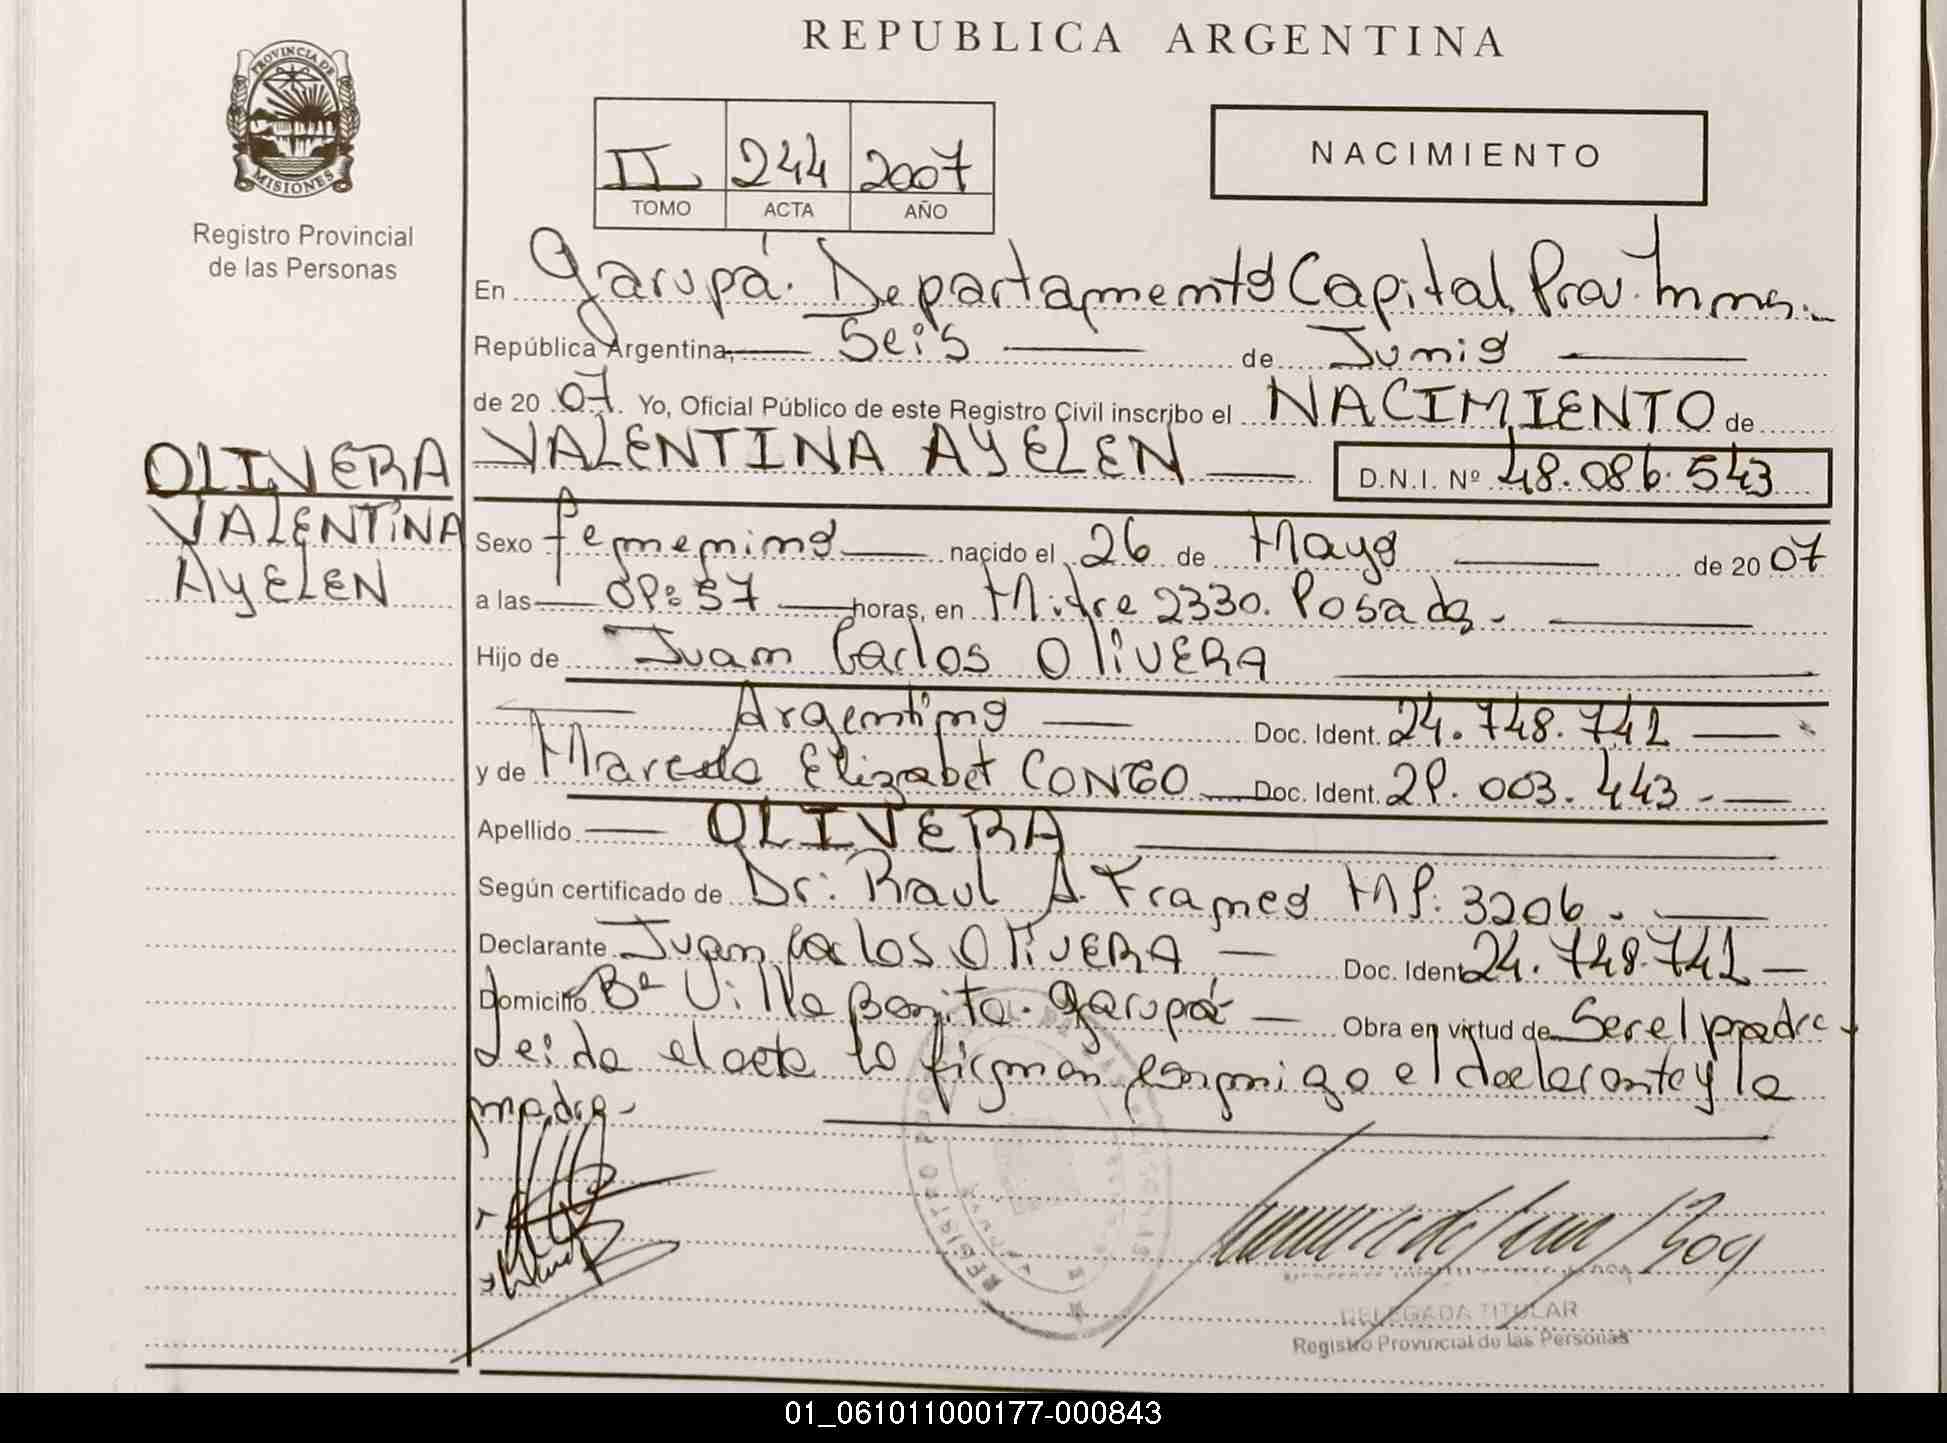 REPUBLICA ARGENTINA
PROVINCIA DE
MISIONES
Registro Provincial
de las Personas
II 244 2007
TOMO ACTA AÑO
NACIMIENTO
En Garupá. Departamento Capital, Prov. Mnes.
República Argentina, Seis de Junio
de 2007. Yo, Oficial Público de este Registro Civil inscribo el NACIMIENTO de
VALENTINA AYELEN D.N.I. Nº 48.086.543
OLIVERA
VALENTINA
AYELEN
Sexo femenino nacido el 26 de Mayo de 2007
a las 09:57 horas, en Mitre 2330. Posadas.
Hijo de Juan Carlos OLIVERA
Argentino Doc. Ident. 24.748.742
y de Marcela Elizabet Doc. Ident. 29.003.443
Apellido OLIVERA
Según certificado de Dr: Raul A. MP: 3206.
Declarante Juan Carlos OLIVERA Doc. Ident. 24.748.742
Domicilio Bº Villa Bonita. Garupá Obra en virtud de Ser el padre
Leida el acta la firman conmigo el declarante y la
madre.
DELEGADA TITULAR
Registro Provincial de las Personas
01_061011000177-000843